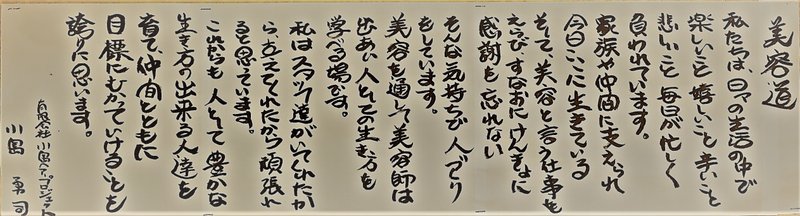 美容道
私たちは、日々の生活の中で
楽しいこと嬉しいこと辛いこと
悲しいこと毎日が忙しく
負われています。
家族や仲間に支えられ
今日ここに生きている
そして、美容と言う仕事を
えらび すなおに けんきょに
感謝を忘れない
そんな気持ちが人づくり
をしています。
美容を通して美容師は
出あい人としての生き方を
学べる場です。
私はスタッフ達がいてくれたか
ら、支えてくれたから頑張れ
ると思っています。
これからも人として豊かな
生き方の出来る人達を
育て、仲間とともに
目標にむかっていけることを
誇りに思います。
有限会社 小島ヘアープロジェクト
小島 勇司